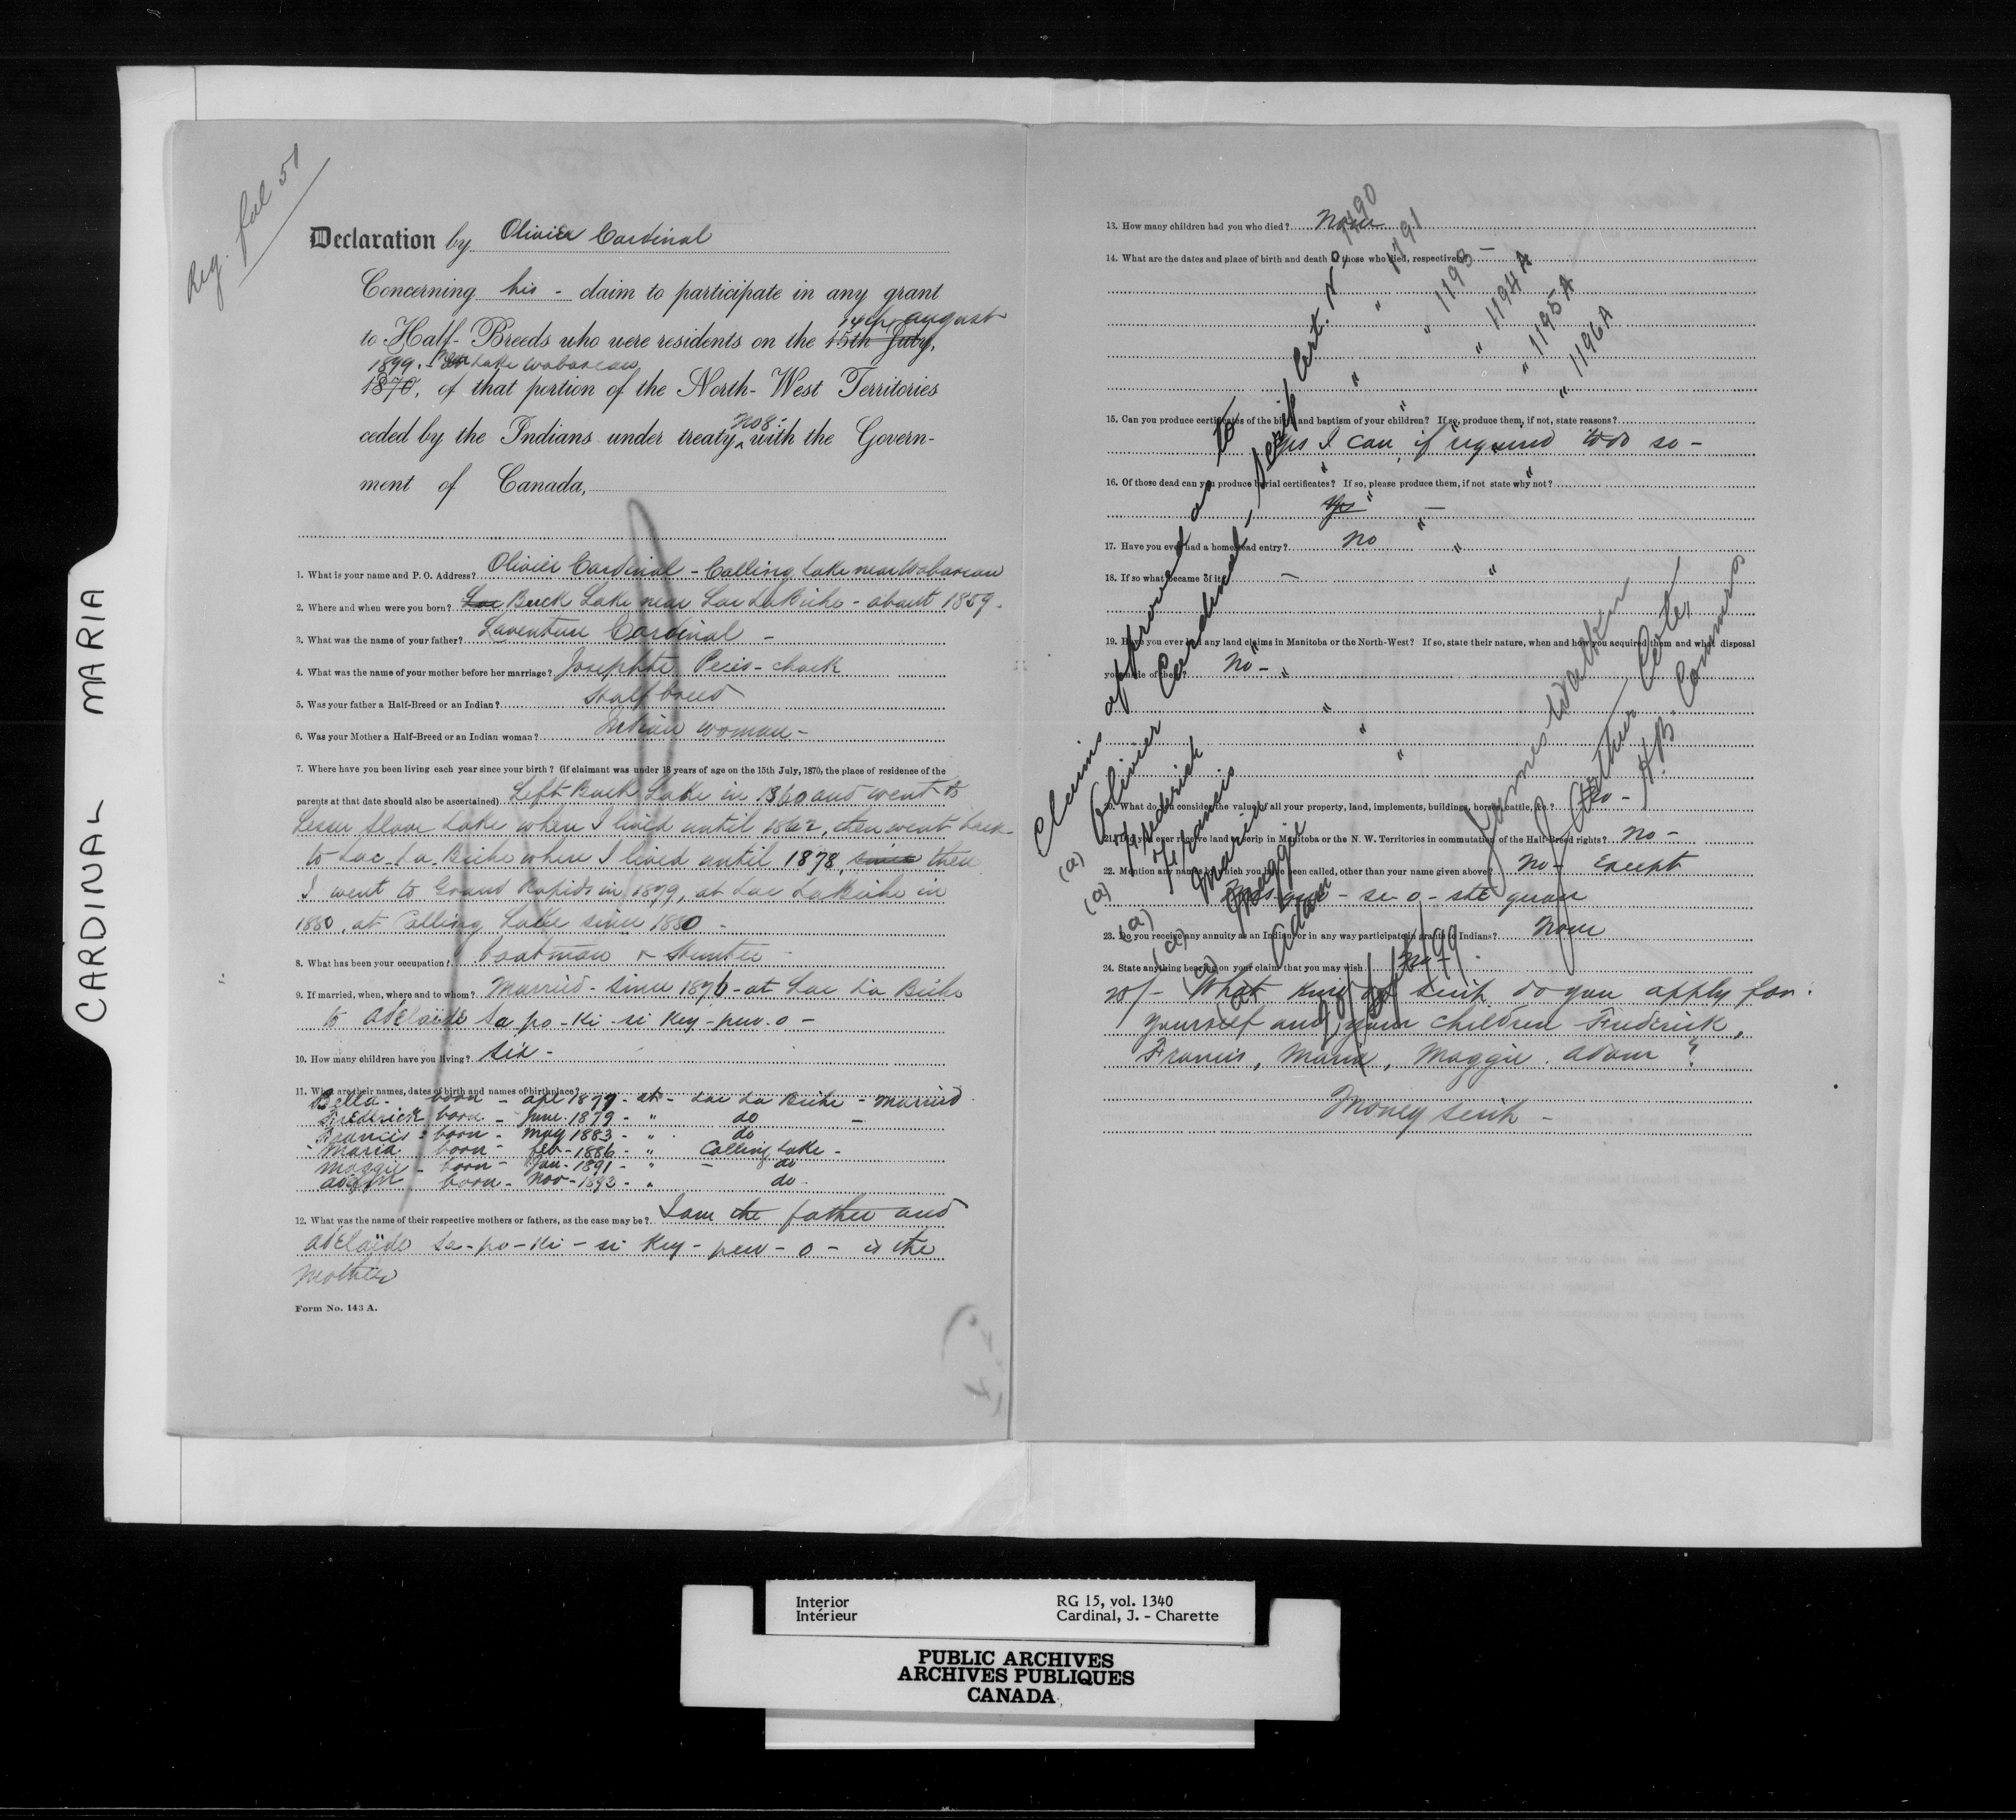 CARDINAL MARIA
Reg. fol 51
Declaration by Olivier Cardinal
Concerning his - claim to participate in any grant
14th august
to Half-Breeds who were residents on the 15th July,
1899. Lake Wabascaw
1870, of that portion of the North-West Territories
No 8
ceded by the Indians under treaty with the Govern-
ment of Canada,
1. What is your name and P. O. Address? Olivier Cardinal - Calling Lake near Wabascaw
2. Where and when were you born? Lac Buck Lake near Lac La Biche - about 1859.
3. What was the name of your father? Laventure Cardinal -
4. What was the name of your mother before her marriage? Josephte
5. Was your father a Half-Breed or an Indian? Half breed
6. Was your Mother a Half-Breed or an Indian woman? Indian woman -
7. Where have you been living each year since your birth? (if claimant was under 18 years of age on the 15th July, 1870, the place of residence of the
parents at that date should also be ascertained) Left Buck Lake in 1860 and went to
Lesser Slave Lake where I lived until 1862, then went back
to Lac La Biche where I lived until 1878, since then
I went to Grand Rapids in 1879, at Lac La Biche in
1880, at Calling Lake since 1880 -
8. What has been your occupation? boatman & Hunter
9. If married, when, where and to whom? Married - since 1876 - at Lac La Biche
to Adelaïde Sa-po-ki-si key-pew-o -
10. How many children have you living? Six -
11. What are their names, dates of birth and names of birthplace?
Bella - born - apl 1877 - at - Lac La Biche - married
Frederick born - June 1879 - " do -
Francis - born - May 1883 - " do
Maria born - feb - 1886 - " Calling Lake -
Maggie - born - Jan - 1891 - " - do
Adam born - Nov - 1893 - " do.
12. What was the name of their respective mothers or fathers, as the case may be? I am the father and
Adelaïde Sa-po-ki-si key-pew-o - is the
mother
Form No. 143 A.
13. How many children had you who died? None
14. What are the dates and place of birth and death of those who died, respectively? -
15. Can you produce certificates of the birth and baptism of your children? If so, produce them, if not, state reasons?
Yes I can, if required to do so -
16. Of those dead can you produce burial certificates? If so, please produce them, if not state why not?
Yes -
17. Have you ever had a homestead entry? No
18. If so what became of it? -
19. Have you ever had any land claims in Manitoba or the North-West? If so, state their nature, when and how you acquired them and what disposal
you made of them? No -
20. What do you consider the value of all your property, land, implements, buildings, horses, cattle, &c.?
21. Did you ever receive land or scrip in Manitoba or the N. W. Territories in commutation of the Half-Breed rights? No -
22. Mention any names by which you have been called, other than your name given above? No - Except
23. Do you receive any annuity as an Indian, or in any way participate in grants to Indians? None
24. State anything bearing on your claim that you may wish No -
25/- What kind of scrip do you apply for.
yourself and your children Frederick,
Francis, Maria, Maggie, Adam?
Money scrip -
Claims approved as to
(a) Olivier Cardinal, scrip Cert. No 1490
(a) Frederick " " " 1791
(a) Francis " " " 1193
(a) Maria " " " 1194 A
(a) Maggie " " " 1195 A
(a) Adam " " " 1196 A
James Walker
J. Arthur Coté,
H.B. Commrs
Interior RG 15, vol. 1340
Intérieur Cardinal, J. - Charette
PUBLIC ARCHIVES
ARCHIVES PUBLIQUES
CANADA